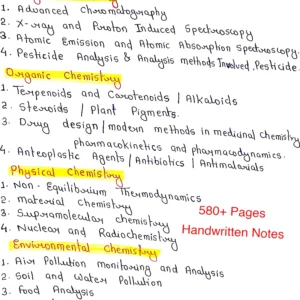 1. Advanced Chromatography
2. X-ray and Proton Induced Spectroscopy
3. Atomic Emission and Atomic Absorption Spectroscopy.
4. Pesticide Analysis & Analysis methods Involved Pesticide.
Organic Chemistry
1. Terpenoids and Carotenoids / Alkaloids
2. Steroids / Plant Pigments.
3. Drug design / modern methods in medicinal chemistry
pharmacokinetics and pharmacodynamics.
4. Anteoplastic Agents / Antibiotics / Antimalarials
Physical Chemistry
1. Non-Equilibrium Thermodynamics
2. material Chemistry
3. Supramolecular chemistry
4. Nuclear and Radiochemistry
580+ Pages
Handwritten Notes
Environmental Chemistry
1. Air Pollution monitoring and Analysis
2. Soil and Water Pollution
3. Food Analysis